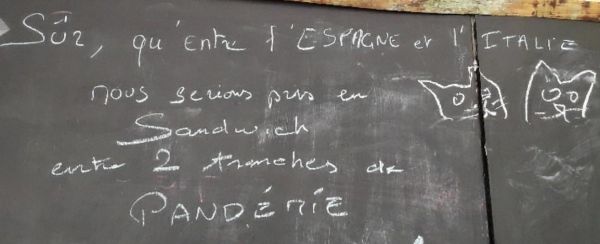 Sûr, qu'entre l'ESPAGNE et l'ITALIE
nous serions pris en
Sandwich
entre 2 tranches de
PANDÉMIE